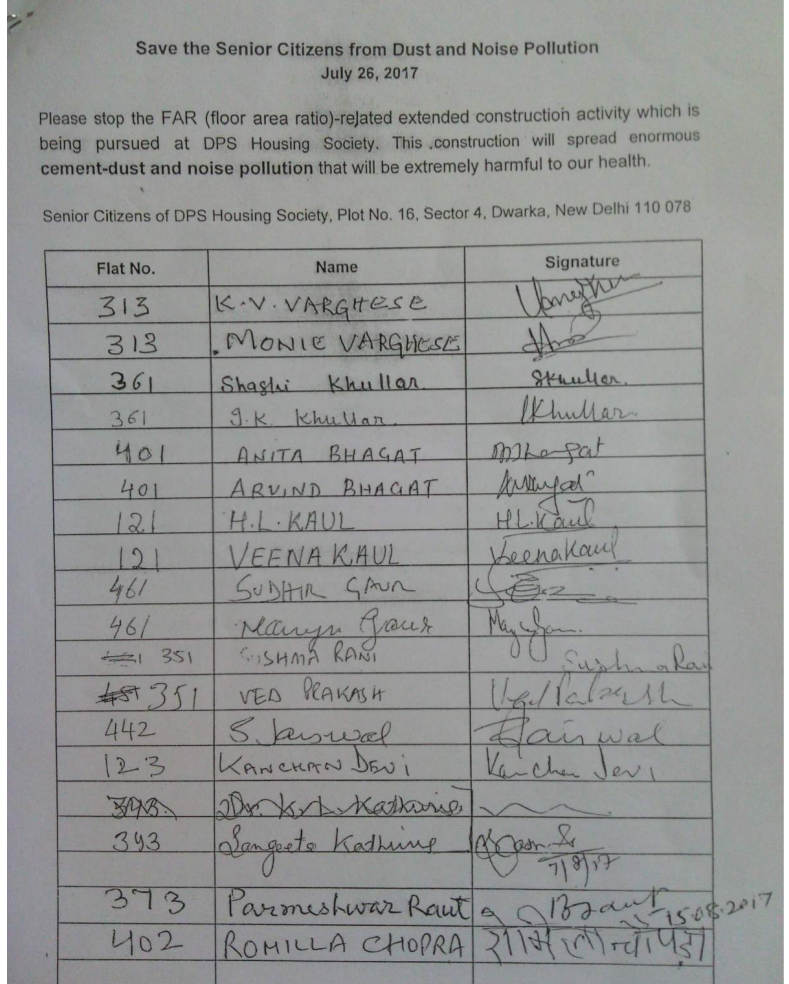 Save the Senior Citizens from Dust and Noise Pollution
July 26, 2017
Please stop the FAR (floor area ratio)-related extended construction activity which is
being pursued at DPS Housing Society. This construction will spread enormous
cement-dust and noise pollution that will be extremely harmful to our health.
Senior Citizens of DPS Housing Society, Plot No. 16, Sector 4, Dwarka, New Delhi 110 078
Flat No. Name Signature
313 K.V. VARGHESE
313 MONIE VARGHESE
361 Shashi Khullar SKhullar.
361 I.K. Khullar Khullar
401 ANITA BHAGAT
401 ARVIND BHAGAT
121 H.L. KAUL H.L. Kaul
121 VEENA KAUL Veena Kaul
461 SUDHIR GAUR
461 Gaur
351 SUSHMA RANI Sushma Rani
351 VED PRAKASH Ved Prakash
442 S. Jaiswal Jaiswal
123 KANCHAN DEVI Kanchan Devi
393. Dr. Kathuria
393 Sangeeta Kathuria
7/8/17
373 Parmeshwar Raut 15.08.2017
402 ROMILLA CHOPRA रोमिला चोपड़ा